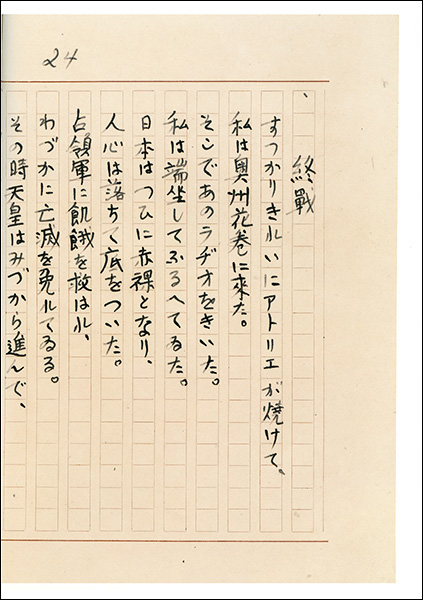 24
終戰
すつかりきれいにアトリエが焼けて、
私は奥州花巻に來た。
そこであのラヂオをきいた。
私は端坐してふるへてゐた。
日本はつひに赤裸となり、
人心は落ちて底をついた。
占領軍に飢餓を救はれ、
わづかに亡滅を免れてゐる。
その時天皇はみづから進んで、